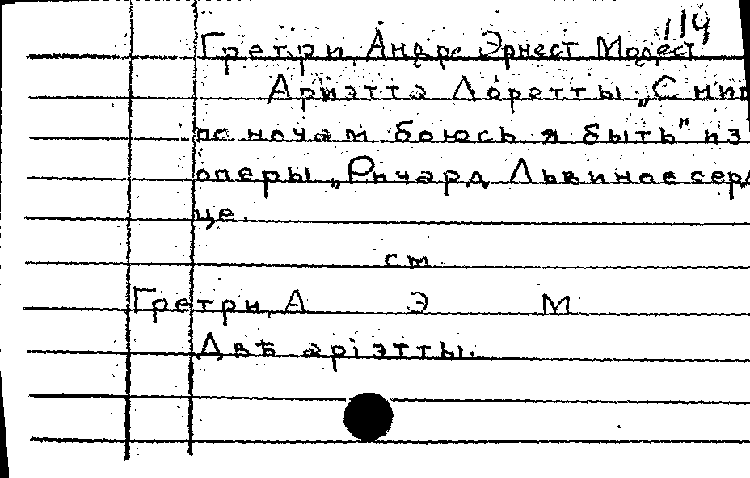 114
Гретри, Андре Эрнест Модест
Ариэтта Лоретты „С ним
по ночам боюсь я быть" из
оперы „Ричард Львиное серд
це.
см.
Гретри, А Э М
Двѣ аріэтты.